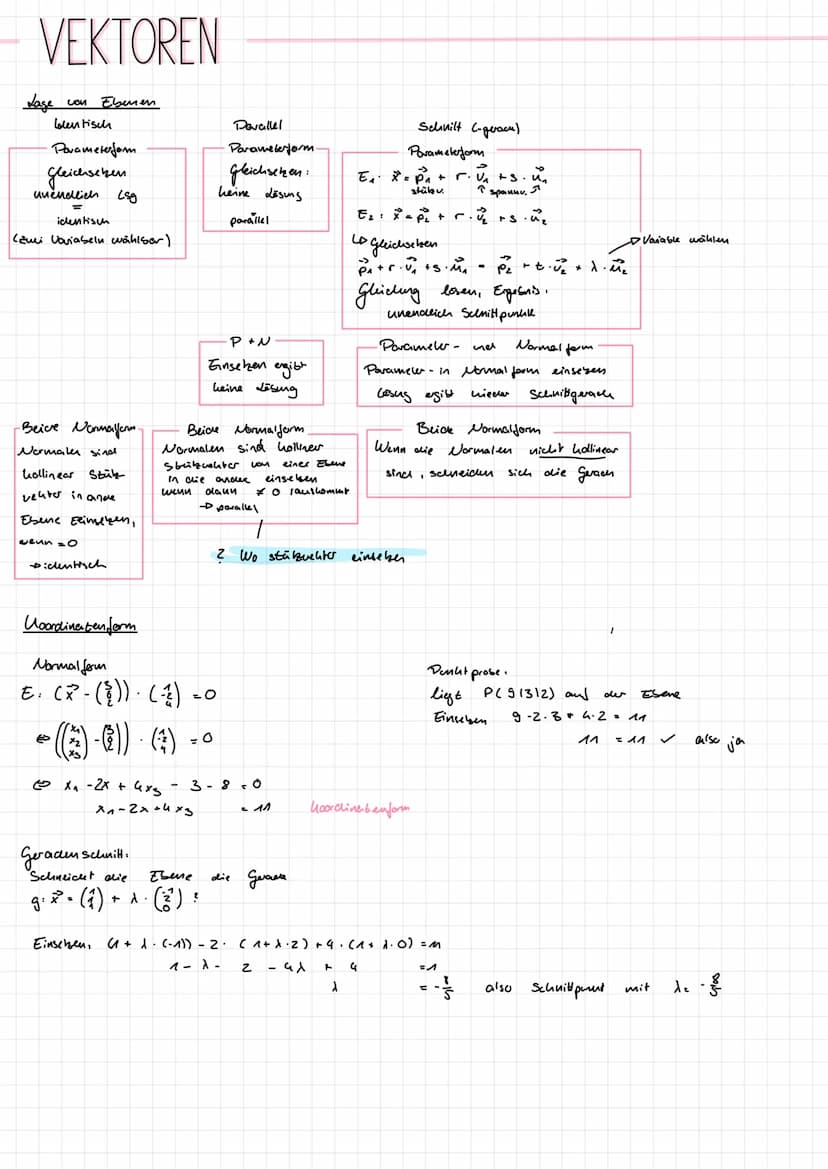 VEKTOREN
Lage von Ebenen
Identisch
Parameterform
Gleichsetzen
unendlich Lsg
=
identisch
(zwei Variabeln wählbar)
Parallel
Parameterform
Gleichsetzen:
keine Lösung
parallel
Schnitt (-gerade)
Parameterform
E₁: x⃗ = p⃗₁ + r · v⃗₁ + s · u⃗₁
stützv. ↑ spannv. ↗
E₂: x⃗ = p⃗₂ + r · v⃗₂ + s · u⃗₂
↳ Gleichsetzen
→ Variable wählen
p⃗₁ + r · v⃗₁ + s · u⃗₁ = p⃗₂ + t · v⃗₂ + λ · u⃗₂
Gleichung lösen, Ergebnis:
unendlich Schnittpunkte
P + N
Einsetzen ergibt
keine Lösung
Parameter- und Normalform
Parameter- in Normalform einsetzen
Lösung ergibt wieder Schnittgerade
Beide Normalform
Normalen sind
kollinear Stütz
vektor in andre
Ebene Einsetzen,
wenn = 0
→ identisch
Beide Normalform
Normalen sind kollinear
Stützvektor von einer Ebene
in die andre einsetzen
wenn dann ≠ 0 rauskommt
→ parallel
? Wo stützvektor einsetzen
Beide Normalform
Wenn die Normalen nicht kollinear
sind, schneiden sich die Geraden
Koordinatenform
Normalform
E: (x⃗ - (3 0 2)) · (1 -2 4) = 0
⇔ ((x₁ x₂ x₃) - (3 0 2)) · (1 -2 4) = 0
⇔ x₁ - 2x + 4x₃ - 3 - 8 = 0
x₁ - 2x + 4x₃ = 11 Koordinatenform
Punktprobe:
liegt P(9|3|2) auf der Ebene
Einsetzen 9 - 2·3 + 4·2 = 11
11 = 11 ✓ also ja
Geradenschnitt:
Schneidet die Ebene die Gerade
g: x⃗ = (1 1 1) + λ · (-1 2 0) ?
Einsetzen: (1 + λ · (-1)) - 2 · (1 + λ · 2) + 4 · (1 + λ · 0) = 11
1 - λ - 2 - 4λ + 4 = 1
λ = - 8/5 also Schnittpunkt mit λ = - 8/5